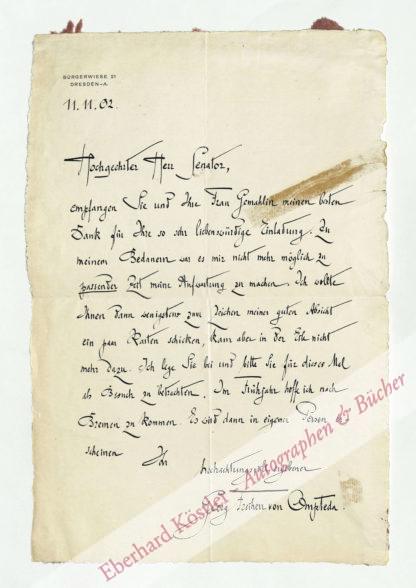 BÜRGERWIESE 21
DRESDEN-A.
11.11.02.
Hochgeehrter Herr Senator,
empfangen Sie und Ihre Frau Gemahlin meinen besten
Dank für Ihre so sehr liebenswürdige Einladung. Zu
meinem Bedauern war es mir nicht mehr möglich zu
passender Zeit meine Aufwartung zu machen. Ich wollte
Ihnen dann wenigstens zum Zeichen meiner guten Absicht
ein paar Karten schicken, kam aber in der Eile nicht
mehr dazu. Ich lege Sie bei und bitte Sie für dieses Mal
als Besuch zu betrachten. Im Frühjahr hoffe ich nach
Bremen zu kommen. Es wird dann in eigener Person er
scheinen Ihr
hochachtungsvoll ergebener
Georg Freiherr von Ompteda.
Eberhard Köstler Autographen & Bücher